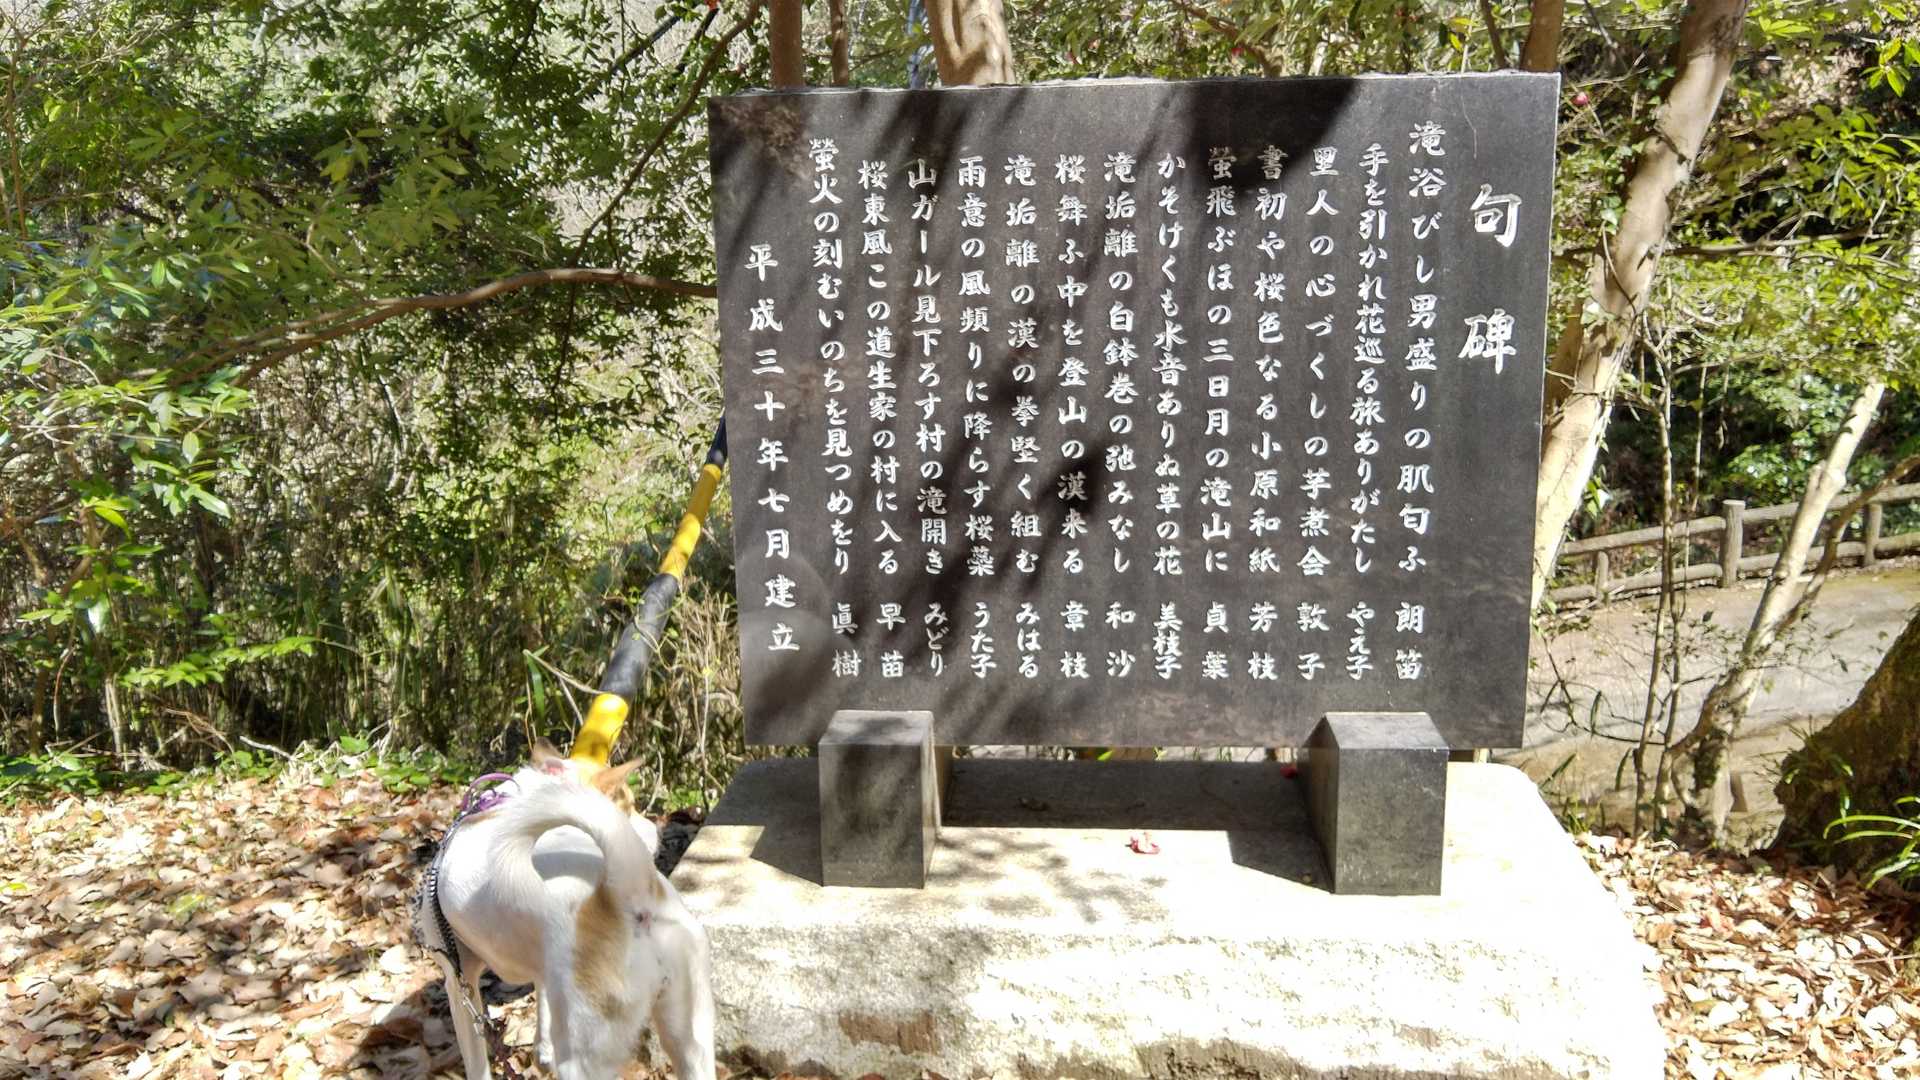 句碑
滝浴びし男盛りの肌匂ふ 朗笛
手を引かれ花巡る旅ありがたし やえ子
里人の心づくしの芋煮会 敦子
書初や桜色なる小原和紙 芳枝
螢飛ぶほの三日月の滝山に 貞葉
かそけくも水音ありぬ草の花 美枝子
滝垢離の白鉢巻の弛みなし 和沙
桜舞ふ中を登山の漢来る 章枝
滝垢離の漢の拳堅く組む みはる
雨意の風頻りに降らす桜蘂 うた子
山ガール見下ろす村の滝開き みどり
桜東風この道生家の村に入る 早苗
螢火の刻むいのちを見つめをり 眞樹
平成三十年七月建立